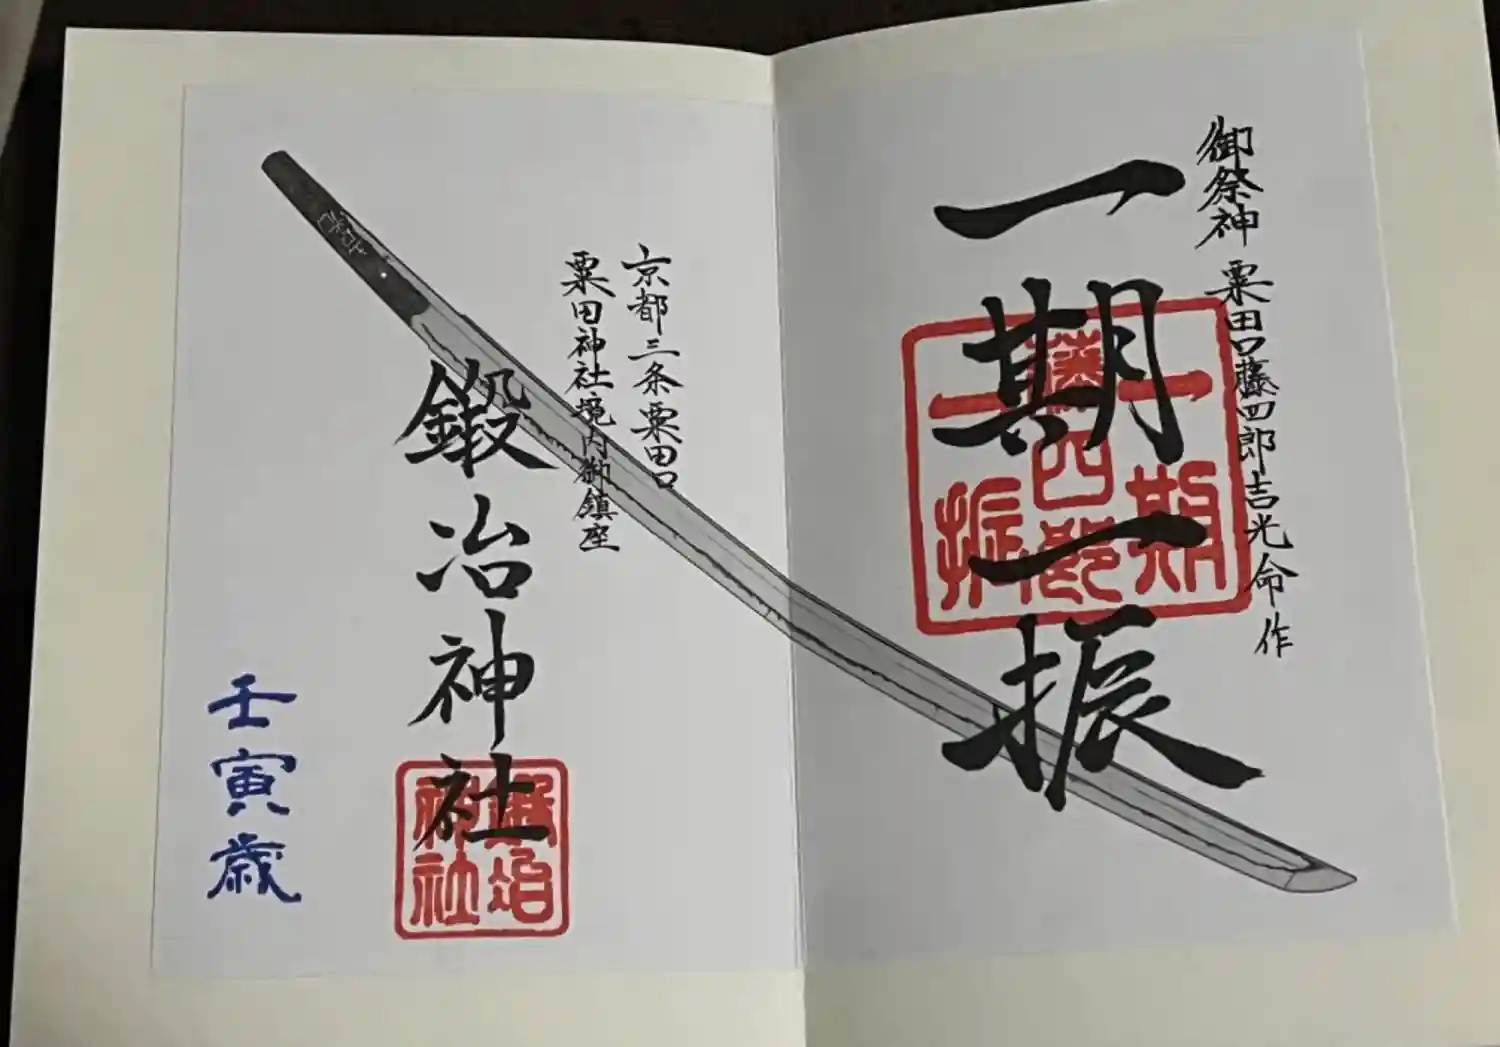 御祭神 粟田口藤四郎吉光命作
一期一振
一期一振
藤四郎
京都三条粟田口
粟田神社境内御鎮座
鍛冶神社
鍛冶神社
壬寅歳